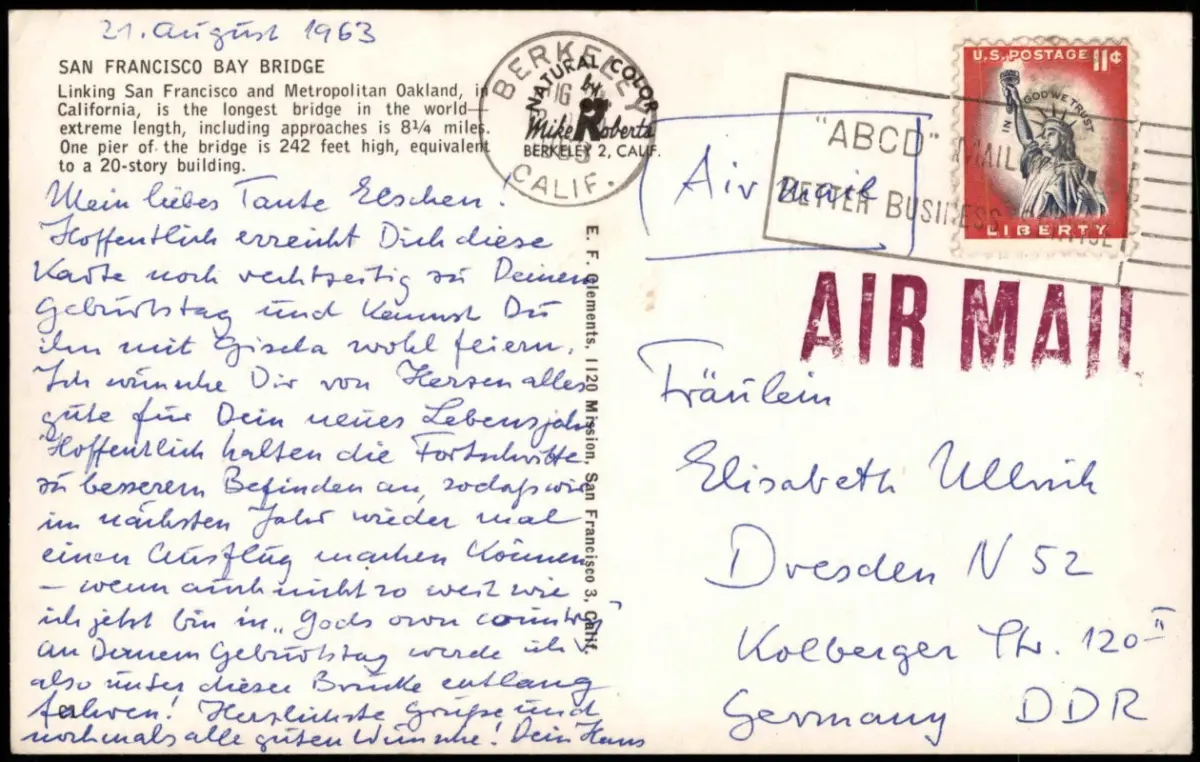 21. August 1963
SAN FRANCISCO BAY BRIDGE
Linking San Francisco and Metropolitan Oakland, in
California, is the longest bridge in the world—
extreme length, including approaches is 8¼ miles.
One pier of the bridge is 242 feet high, equivalent
to a 20-story building.
Mein liebes Tante Elschen!
Hoffentlich erreicht Dich diese
Karte noch rechtzeitig zu Deinem
Geburtstag und kannst Du
ihn mit Gisela wohl feiern.
Ich wünsche Dir von Herzen alles
gute für Dein neues Lebensjahr
Hoffentlich halten die Fortschritte
zu besserem Befinden an, sodaß wir
im nächsten Jahr wieder mal
einen Ausflug machen können
– wenn auch nicht so weit wie
ich jetzt bin in „Gods own country"
An Deinem Geburtstag werde ich
also unter dieser Brücke entlang
fahren! Herzlichste Grüße und
nochmals alle guten Wünsche! Dein Hans
E. F. Clements, 1120 Mission, San Francisco 3, Calif.
BERKELEY
CALIF.
NATURAL COLOR
by
Mike Roberts
BERKELEY 2, CALIF.
"ABCD" MAIL
BETTER BUSINESS
U.S. POSTAGE 11¢
IN GOD WE TRUST
LIBERTY
Air mail
AIR MAIL
Fräulein
Elisabeth Ullrich
Dresden N 52
Kolberger Str. 120 II
Germany DDR